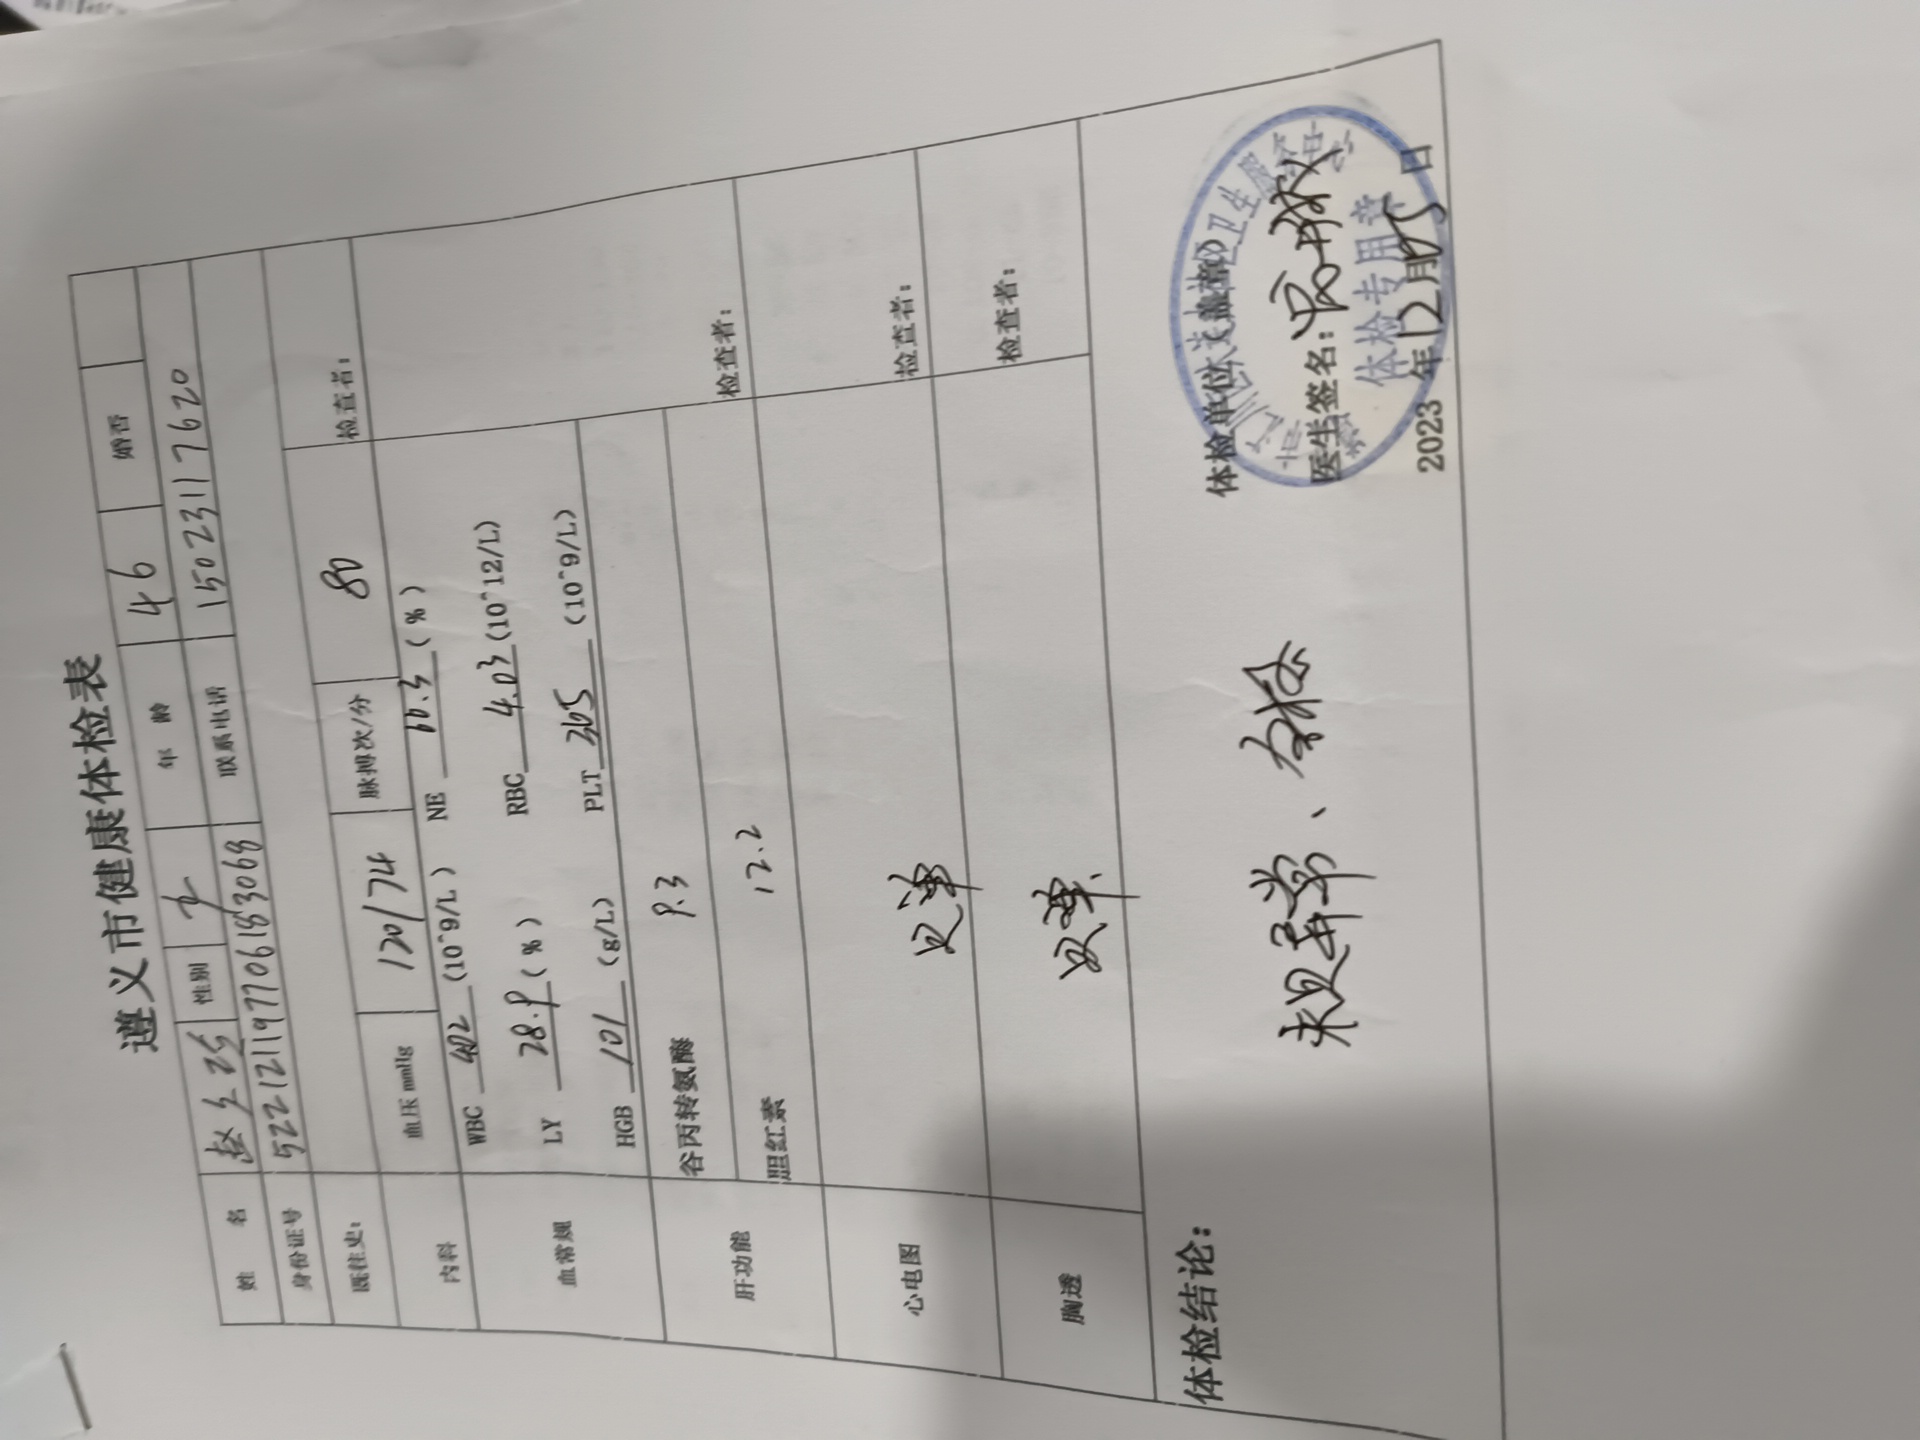 遵义市健康体检表
姓 名 赵 性别 女 年 龄 46 婚否
身份证号 522121197706183068 联系电话 15023117620
既往史：
内科 血压 mmHg 120/74 脉搏次/分 80 检查者：
血常规 WBC (10^9/L) NE 60.3 (%)
LY 28.9 (%) RBC 4.03 (10^12/L)
HGB 101 (g/L) PLT 365 (10^9/L)
肝功能 谷丙转氨酶 9.3 检查者：
胆红素 12.2
心电图 检查者：
胸透 检查者：
体检结论：
未见异常、合格
体检单位（盖章）
医生签名：
体检专用章
2023 年 12 月 15 日